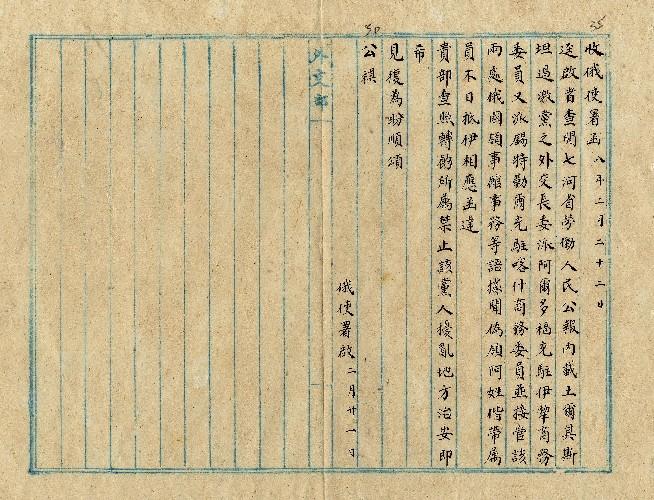 35
50
收俄使署函 八年二月二十二日
逕啟者查閱七河省勞働人民公報內載土爾其斯
坦過激黨之外交長委派阿爾多福充駐伊犂商務
委員又派錫特勒爾充駐喀什商務委員並接管該
兩處俄國領事館事務等語據聞偽領阿姓偕帶屬
員不日抵伊相應函達
貴部查照轉飭所屬禁止該黨人擾亂地方治安即
希
見復為盼順頌
公祺
俄使署啟 二月廿一日
外交部